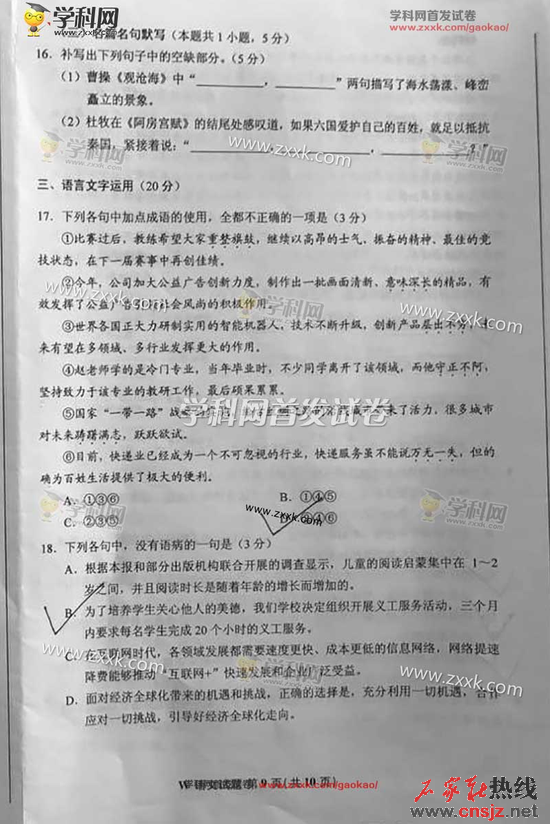 学科网
zxxk.com
学科网首发试卷
www.zxxk.com/gaokao/
名篇名句默写（本题共1小题，5分）
16．补写出下列句子中的空缺部分。（5分）
（1）曹操《观沧海》中“＿＿＿＿，＿＿＿＿”两句描写了海水荡漾、峰峦
矗立的景象。
（2）杜牧在《阿房宫赋》的结尾处感叹道，如果六国爱护自己的百姓，就足以抵抗
秦国，紧接着说：“＿＿＿＿，＿＿＿＿？”
www.zxxk.com
三、语言文字运用（20分）
17．下列各句中加点成语的使用，全都不正确的一项是（3分）
①比赛过后，教练希望大家重整旗鼓，继续以高昂的士气、振奋的精神、最佳的竞
技状态，在下一届赛事中再创佳绩。
②今年，公司加大公益广告创新力度，制作出一批画面清新、意味深长的精品，有
效发挥了公益广告引领社会风尚的积极作用。
③世界各国正大力研制实用的智能机器人，技术不断升级，创新产品层出不穷，未
来有望在多领域、多行业发挥更大的作用。
④赵老师学的是冷门专业，当年毕业时，不少同学离开了该领域，而他守正不阿，
坚持致力于该专业的教研工作，最后硕果累累。
⑤国家“一带一路”战 来了活力，很多城市
对未来踌躇满志，跃跃欲试。
学科网首发试卷
⑥目前，快递业已经成为一个不可忽视的行业，快递服务虽不能说万无一失，但的
确为百姓生活提供了极大的便利。
A．①③⑥ B．①④⑤
C．②③⑤ D．②④⑥
www.zxxk.com
18．下列各句中，没有语病的一句是（3分）
A．根据本报和部分出版机构联合开展的调查显示，儿童的阅读启蒙集中在 1～2
岁之间，并且阅读时长是随着年龄的增长而增加的。
B．为了培养学生关心他人的美德，我们学校决定组织开展义工服务活动，三个月
内要求每名学生完成 20 个小时的义工服务。
C．在互联网时代，各领域发展都需要速度更快、成本更低的信息网络，网络提速
降费能够推动“互联网+”快速发展和企业广泛受益。
D．面对经济全球化带来的机遇和挑战，正确的选择是，充分利用一切机遇，合作
应对一切挑战，引导好经济全球化走向。
语文试题 第 9 页（共 10 页）
石家庄热线
www.cnsjz.net